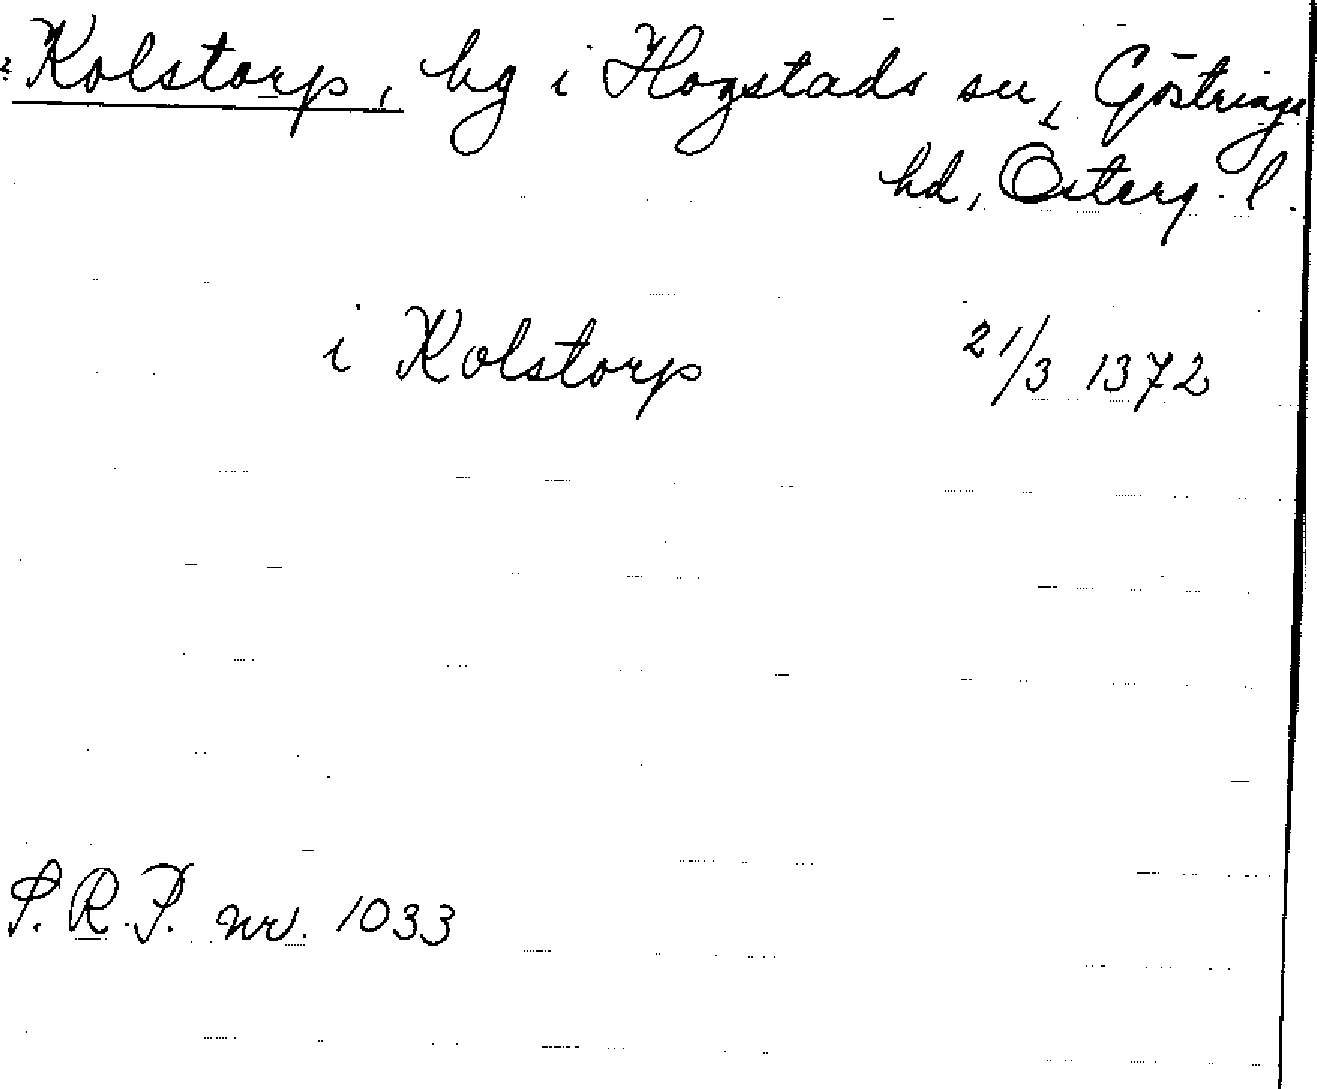 Kolstorp, by i Hogstads sn, Göstrings
hd, Österg. l.
i Kolstorp 21/3 1372
S.R.P. nr. 1033